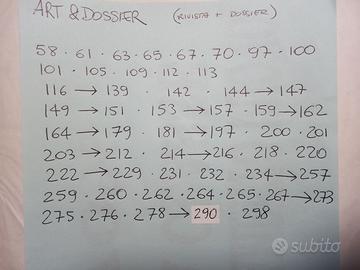 ART & DOSSIER (RIVISTA + DOSSIER)
58 · 61 · 63 · 65 · 67 · 70 · 97 · 100
101 · 105 · 109 · 112 · 113
116 → 139 · 142 · 144 → 147
149 → 151 · 153 → 157 · 159 → 162
164 → 179 · 181 → 197 · 200 · 201
203 → 212 · 214 → 216 · 218 · 220
222 → 229 · 231 · 232 · 234 → 257
259 · 260 · 262 · 264 · 265 · 267 → 273
275 · 276 · 278 → 290 · 298
subito